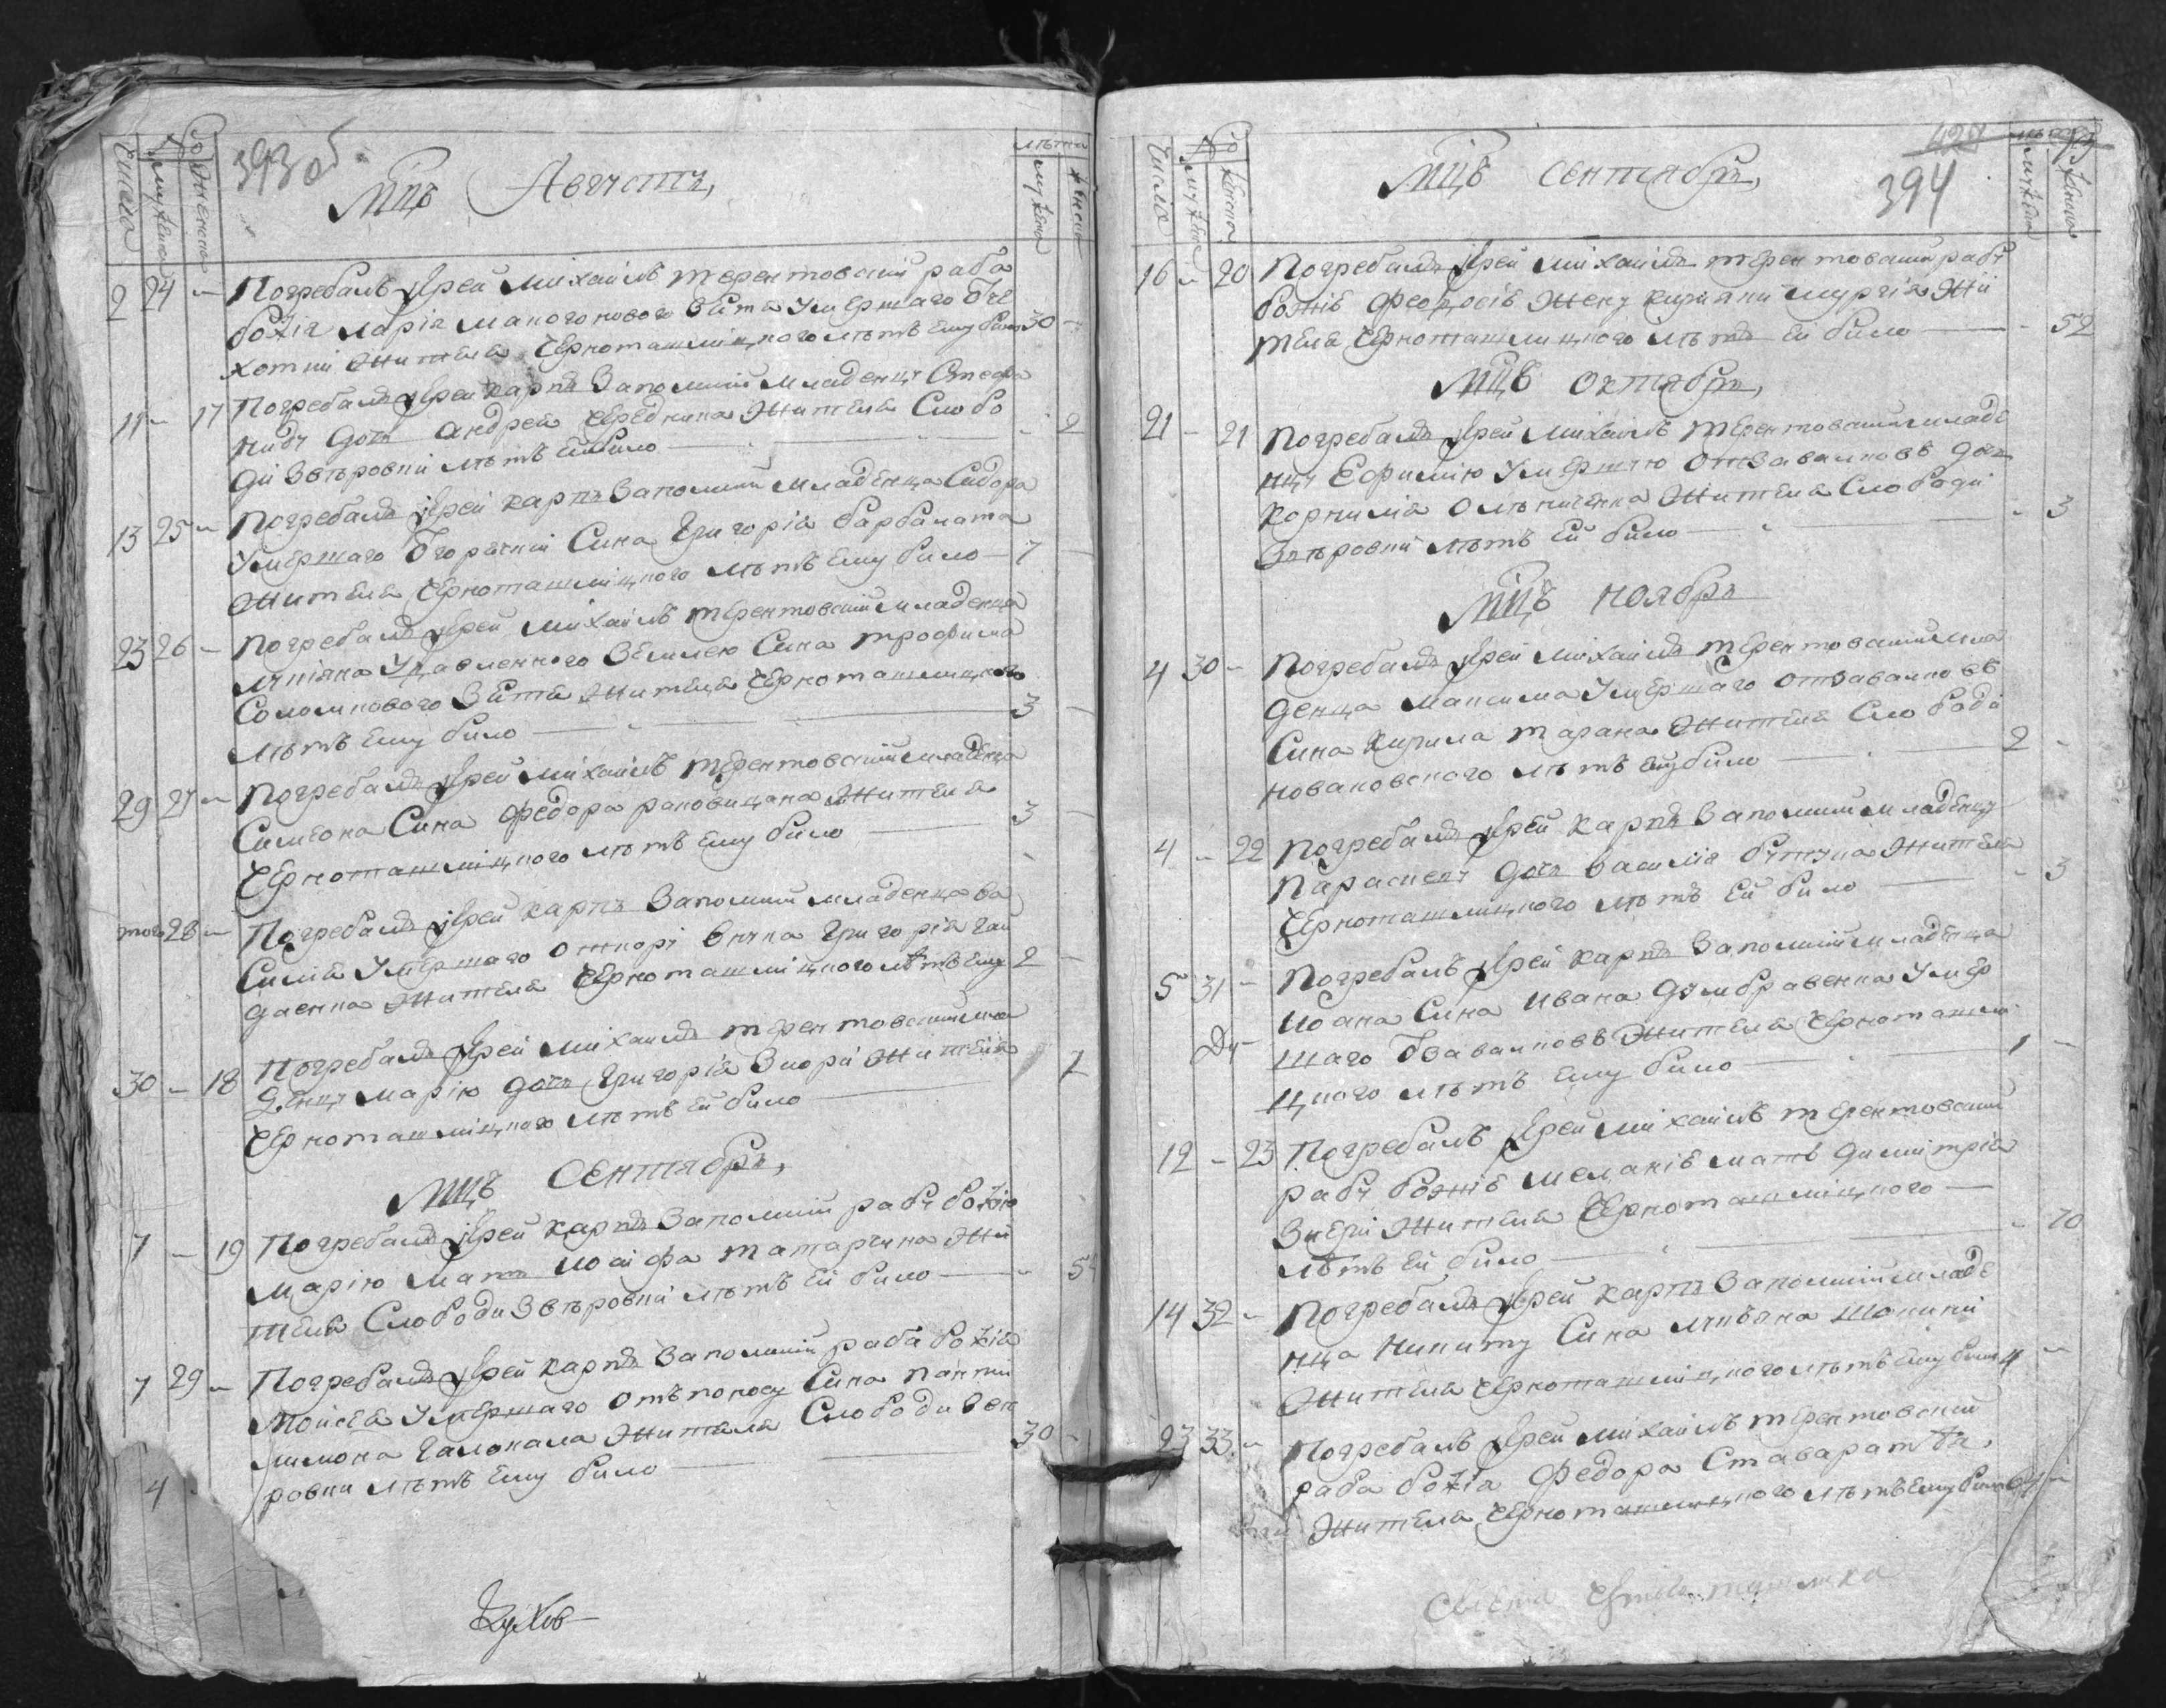 393 об
Числа № мужеска женска
лѣта мужеска женска
Мцъ Августъ,
2 24 - Погребалъ Іерей Михаилъ Терентовский раба
божія Марка Маногонового Зятя умершаго
хотки жителя Черноташлицкого лѣтъ ему било 30 -
11 - 17 Погребалъ Іерей Карпъ Заполский младенцу Стефа
ниду дочь Андрея Середника жителя Слобо
ди Звѣровки лѣтъ ей било - 2
13 25 - Погребалъ Іерей Карпъ Заполский младенца Сидора
умершаго Ѿгорячки Сина Григорія барбалата
жителя Черноташлицкого лѣтъ ему било 7 -
23 26 - Погребалъ Іерей Михаилъ Терентовский младенца
лукіяна удавленного землею Сина Трофима
Соломкового Зятя жителя Черноташлицкого
лѣтъ ему било 3 -
29 27 - Погребалъ Іерей Михаилъ Терентовский младенца
Симеона Сина Федора раковицана жителя
Черноташлицкого лѣтъ ему било 3 -
того 28 - Погребалъ Іерей Карпъ Заполский младенца Ва
силія умершаго Откорі внука Григорія гай
даенка жителя Черноташлицкого лѣтъ ему 2 -
30 - 18 Погребалъ Іерей Михаилъ Терентовский мла
денцу Марію дочь Григорія Знорі жителя
Черноташлицкого лѣтъ ей било 1
Мцъ Сентябрь,
7 - 19 Погребалъ Іерей Карпъ Заполский рабу божію
Марію Мать Иосифа Татарчука жи
теля Слободи Звѣровки лѣтъ ей било -
7 29 - Погребалъ Іерей Карпъ Заполский раба божія
Мойсея умершаго отъ поносу Сина Панти
лимона Галокала жителя Слободи Звѣ
ровки лѣтъ ему било 30 -
4
394
Числа № мужеска женска
лѣта мужеска женска
Мцъ Сентябрь,
16 - 20 Погребалъ Іерей Михаилъ Терентовский рабу
божіѣ Феодосіѣ жену Кирияка мургія жи
теля Черноташлицкого лѣтъ ей било - 52
Мцъ Октябрь,
21 - 21 Погребалъ Іерей Михаилъ Терентовский младе
нцу Ефимію умершую отЗавалковъ дочь
Корнилія Олѣниченка жителя Слободи
Звѣровки лѣтъ ей било - 3
Мцъ Ноябрь
4 30 - Погребалъ Іерей Михаилъ Терентовский мла
денца Максима умершаго отзавалковъ
Сина Кирила Тарана жителя Слободи
Новаковского лѣтъ ему било 2 -
4 - 22 Погребалъ Іерей Карпъ Заполский младенцу
Параскеву дочь Василія бутука жителя
Черноташлицкого лѣтъ ей било - 3
5 31 - Погребалъ Іерей Карпъ Заполский младенца
Иоана Сина Ивана Думбравенка умер
шаго Ѿзавалковъ жителя Черноташли
цкого лѣтъ ему било 1 -
12 - 23 Погребалъ Іерей Михаилъ Терентовский
рабу божіѣ Меланіѣ мать Димитрія
жителя Черноташлицкого
лѣтъ ей било - 70
14 32 - Погребалъ Іерей Карпъ Заполский младе
нца Никиту Сина лукьяна
жителя Черноташлицкого лѣтъ ему било 4 -
23 33 - Погребалъ Іерей Михаилъ Терентовский
раба божія Федора Ставарат
жителя Черноташлицкого лѣтъ ему било -